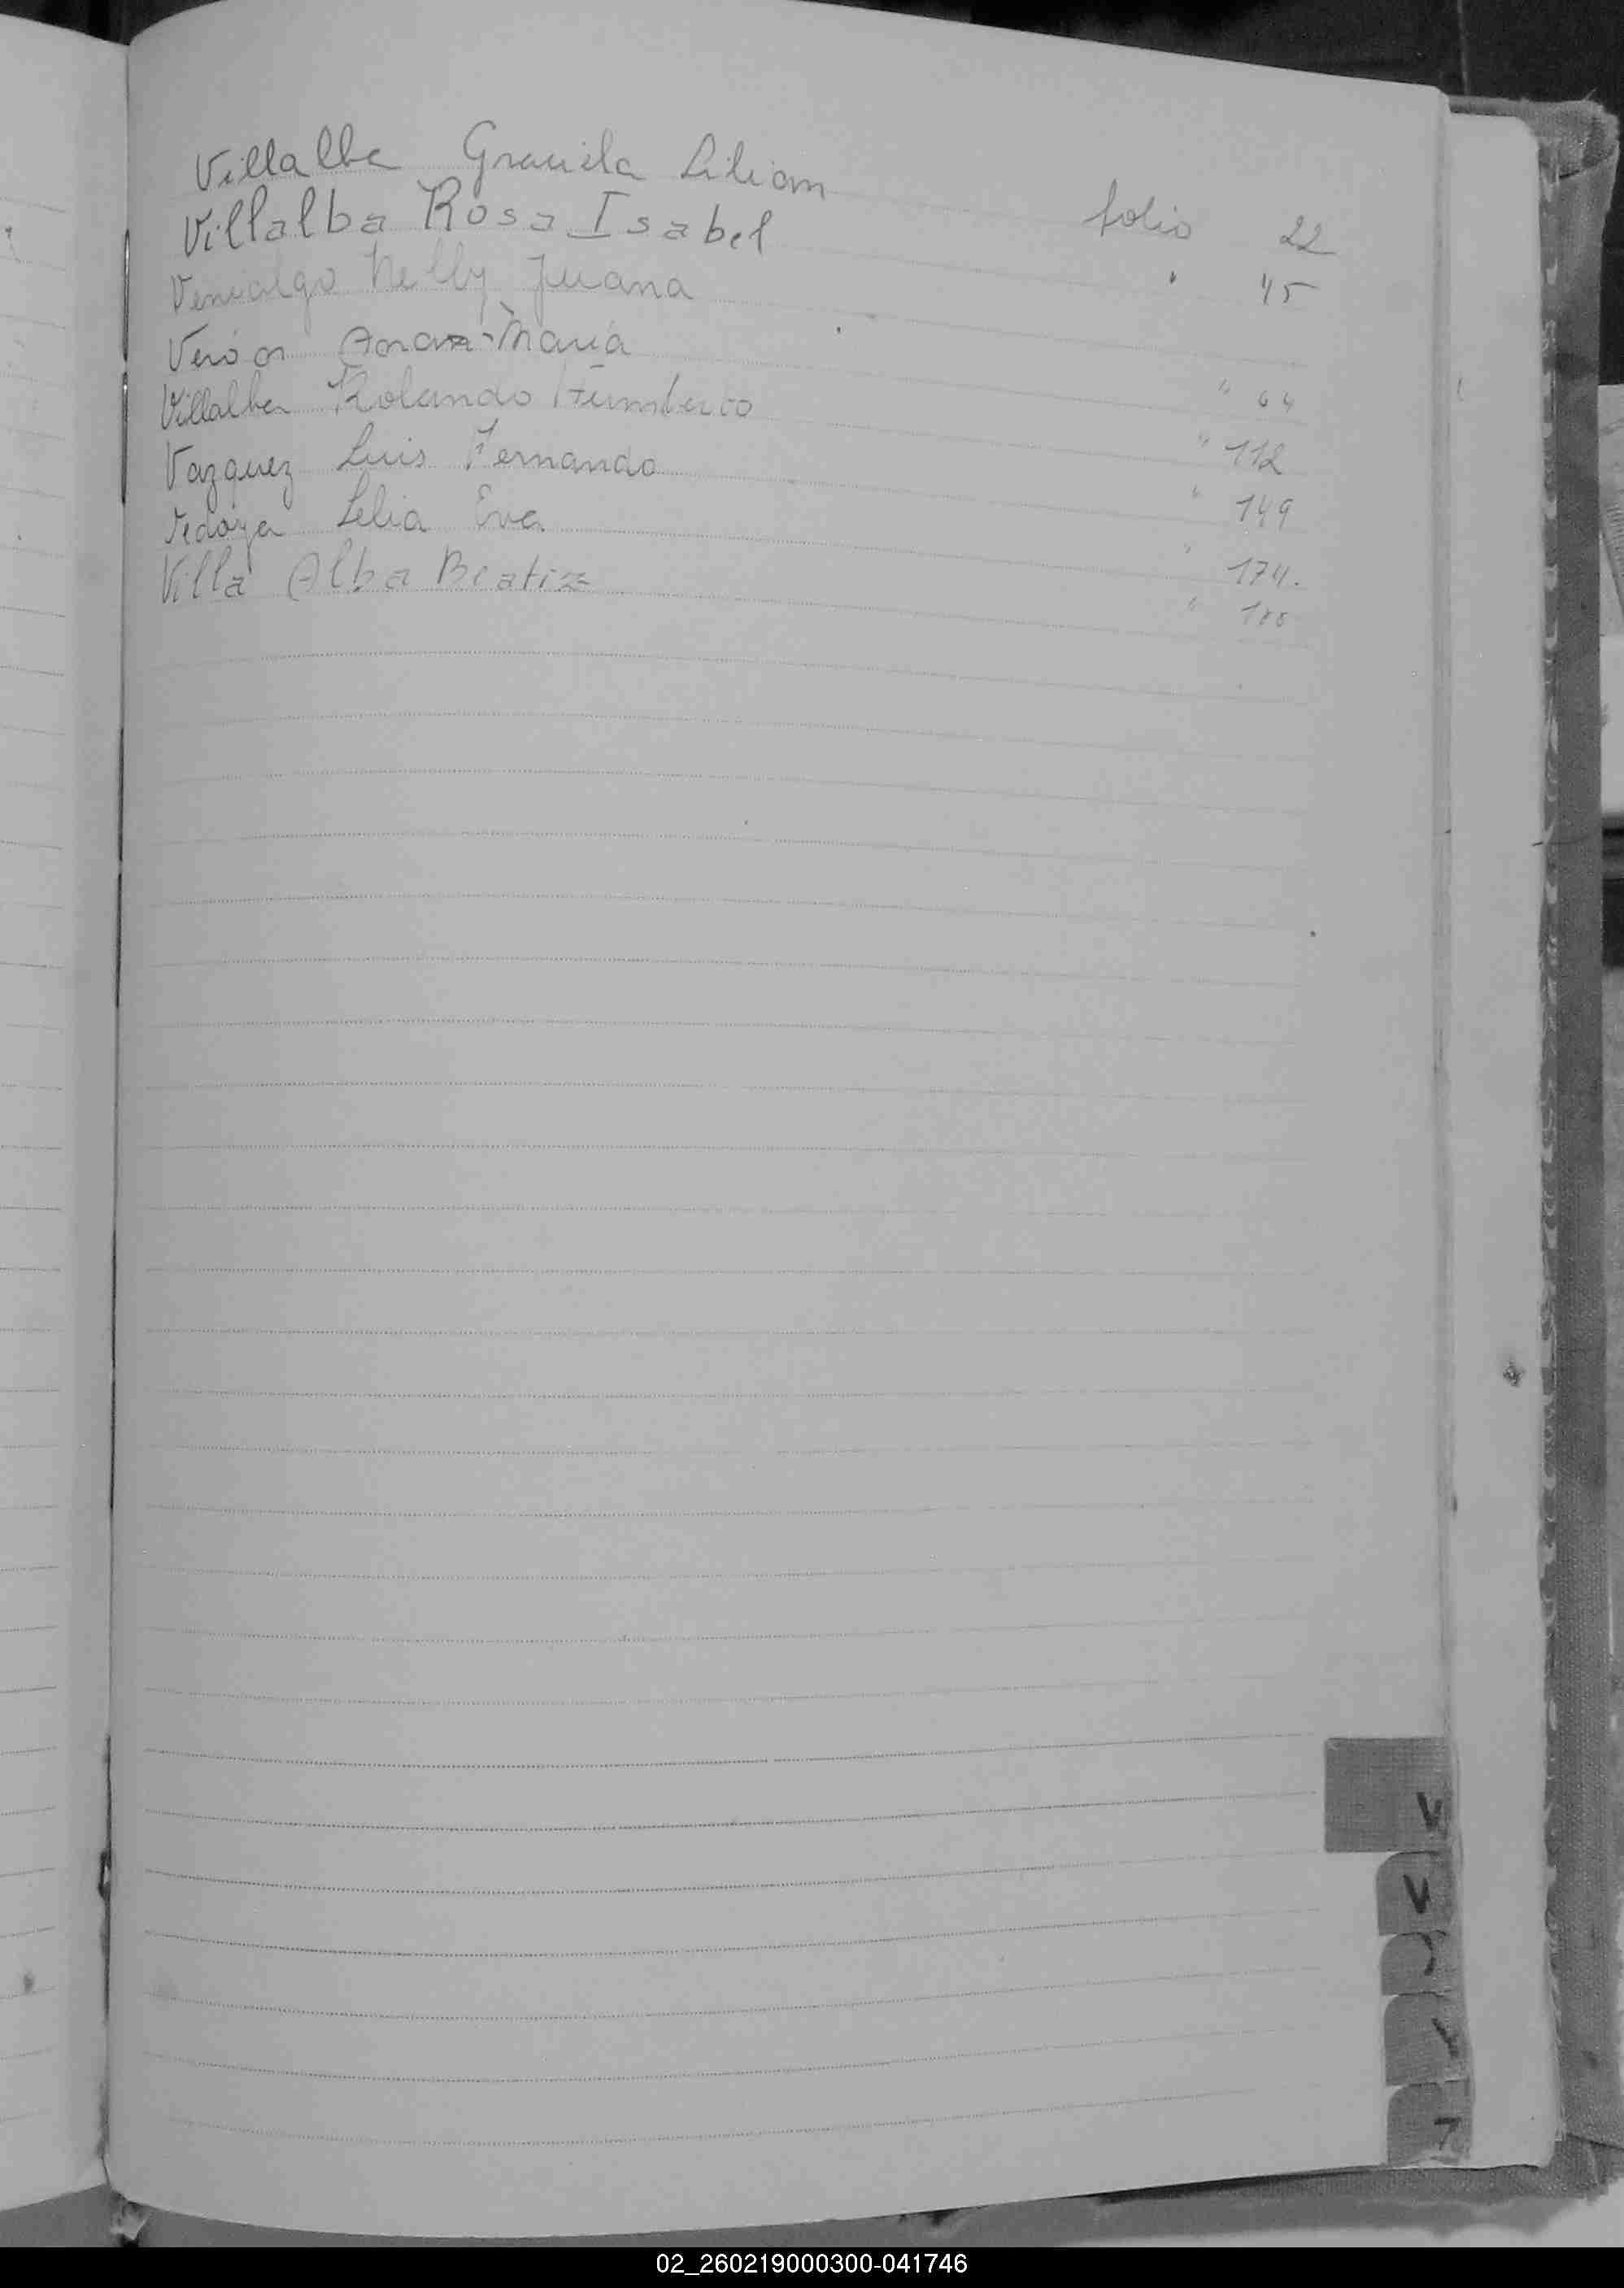 Villalba Graciela Lilian folio 22
Villalba Rosa Isabel " 45
Venialgo Nelly Juana
Verón Ana María " 64
Villalba Rolando Humberto " 112
Vazquez Luis Fernando " 149
Vedoya Lelia Eva " 174.
Villa Alba Beatiz " 188
V
V
7
02_260219000300-041746